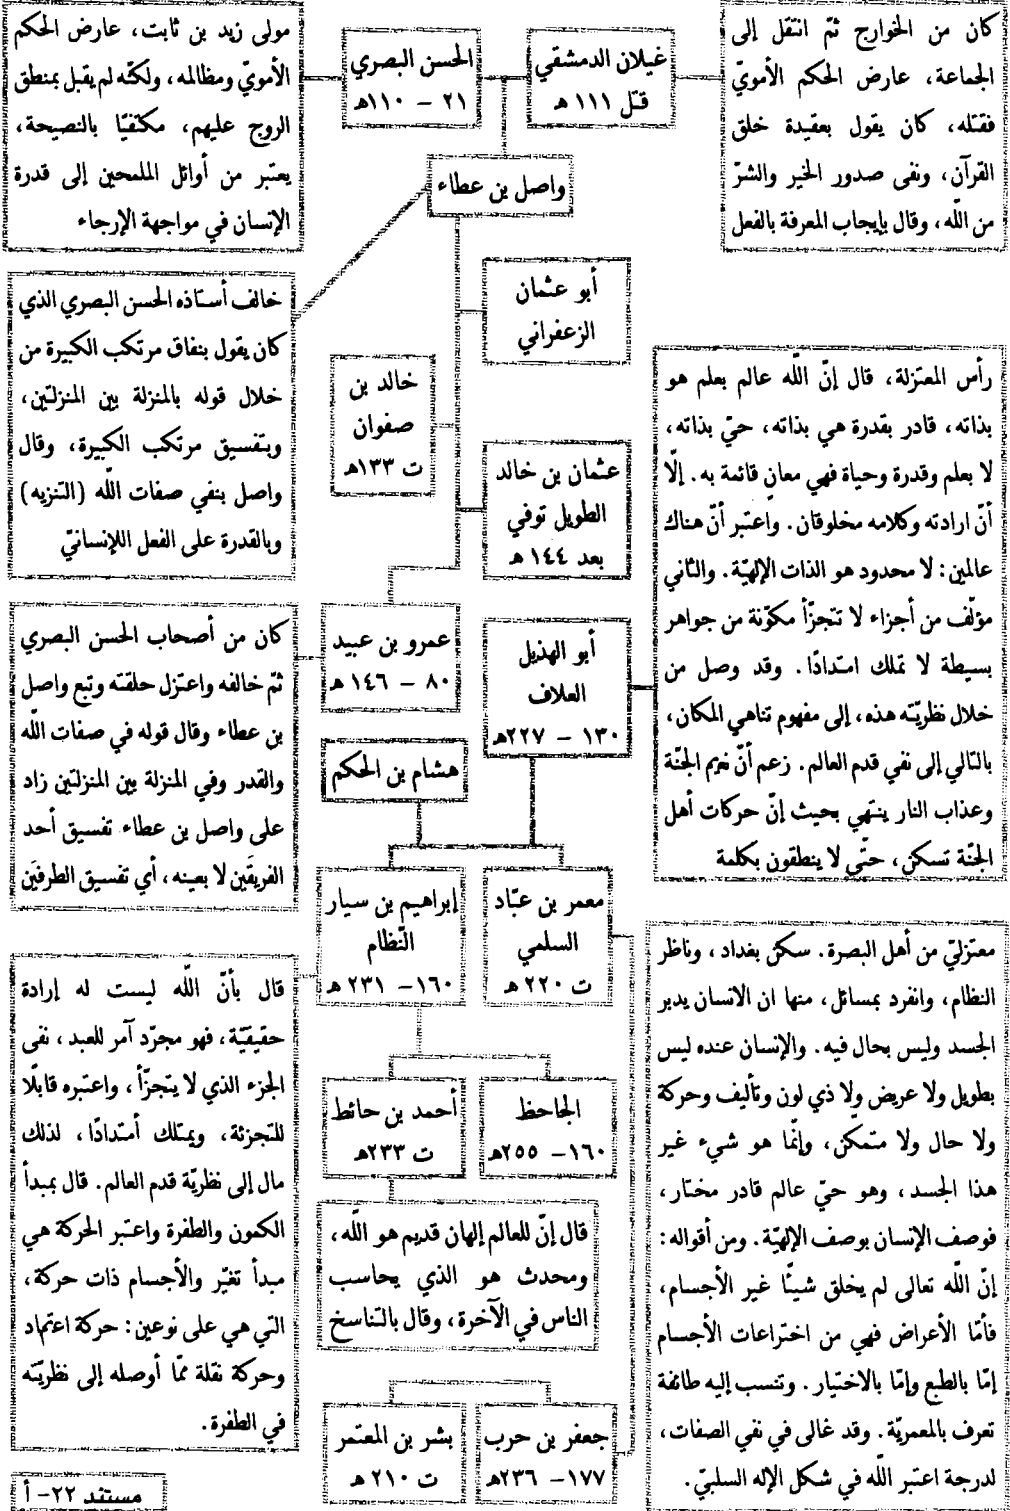 كان من الخوارج ثمّ انتقل إلى
الجماعة، عارض الحكم الأمويّ
فقتله، كان يقول بعقيدة خلق
القرآن، ونفى صدور الخير والشرّ
من اللّه، وقال بإيجاب المعرفة بالفعل
غيلان الدمشقي
قتل ١١١ هـ
الحسن البصري
٢١ – ١١٠هـ
مولى زيد بن ثابت، عارض الحكم
الأمويّ ومظالمه، ولكنّه لم يقبل بمنطق
الروج عليهم، مكتفيًا بالنصيحة،
يعتبر من أوائل الملمحين إلى قدرة
الإنسان في مواجهة الإرجاء
واصل بن عطاء
خالف أستاذه الحسن البصري الذي
كان يقول بنفاق مرتكب الكبيرة من
خلال قوله بالمنزلة بين المنزلتين،
وبتفسيق مرتكب الكبيرة، وقال
واصل بنفي صفات اللّه (التنزيه)
وبالقدرة على الفعل اللإنسانيّ
أبو عثمان
الزعفراني
خالد بن
صفوان
ت ١٣٣هـ
عثمان بن خالد
الطويل توفي
بعد ١٤٤ هـ
رأس المعتزلة، قال إنّ اللّه عالم بعلم هو
بذاته، قادر بقدرة هي بذاته، حيّ بذاته،
لا بعلم وقدرة وحياة فهي معانٍ قائمة به. إلّا
أنّ ارادته وكلامه مخلوقان. واعتبر أنّ هناك
عالمين: لا محدود هو الذات الإلهيّة. والثاني
مؤلّف من أجزاء لا تتجزّأ مكوّنة من جواهر
بسيطة لا تملك امتدادًا. وقد وصل من
خلال نظريّته هذه، إلى مفهوم تناهي المكان،
بالتالي إلى نفي قدم العالم. زعم أنّ نعيم الجنّة
وعذاب النار ينتهي بحيث إنّ حركات أهل
الجنّة تسكن، حتّى لا ينطقون بكلمة
عمرو بن عبيد
٨٠ – ١٤٦ هـ
كان من أصحاب الحسن البصري
ثمّ خالفه واعتزل حلقته وتبع واصل
بن عطاء وقال قوله في صفات اللّه
والقدر وفي المنزلة بين المنزلتين زاد
على واصل بن عطاء تفسيق أحد
الفريقَين لا بعينه، أي تفسيق الطرفَين
أبو الهذيل
العلاف
١٣٠ – ٢٢٧هـ
هشام بن الحكم
معمر بن عبّاد
السلمي
ت ٢٢٠ هـ
إبراهيم بن سيار
النّظام
١٦٠– ٢٣١ هـ
معتزليّ من أهل البصرة. سكن بغداد، وناظر
النظام، وانفرد بمسائل، منها ان الانسان يدير
الجسد وليس بحال فيه. والإنسان عنده ليس
بطويل ولا عريض ولا ذي لون وتأليف وحركة
ولا حال ولا متمكّن، وإنّما هو شيء غير
هذا الجسد، وهو حيّ عالم قادر مختار،
فوصف الإنسان بوصف الإلهيّة. ومن أقواله:
إنّ اللّه تعالى لم يخلق شيئًا غير الأجسام،
فأمّا الأعراض فهي من اختراعات الأجسام
إمّا بالطبع وإمّا بالاختيار. وتنسب إليه طائفة
تعرف بالمعمريّة. وقد غالى في نفي الصفات،
لدرجة اعتبر اللّه في شكل الإله السلبيّ.
قال بأنّ اللّه ليست له إرادة
حقيقيّة، فهو مجرّد آمر للعبد، نفى
الجزء الذي لا يتجزّأ، واعتبره قابلًا
للتجزئة، ويمتلك أمتدادًا، لذلك
مال إلى نظريّة قدم العالم. قال بمبدأ
الكمون والطفرة واعتبر الحركة هي
مبدأ تغيّر والأجسام ذات حركة،
التي هي على نوعين: حركة اعتماد
وحركة نقلة ممّا أوصله إلى نظريّته
في الطفرة.
الجاحظ
١٦٠– ٢٥٥هـ
أحمد بن حائط
ت ٢٣٣هـ
قال إنّ للعالم إلهان قديم هو اللّه،
ومحدث هو الذي يحاسب
الناس في الآخرة، وقال بالتناسخ
جعفر بن حرب
١٧٧– ٢٣٦هـ
بشر بن المعتمر
ت ٢١٠ هـ
مستند ٢٢– أ